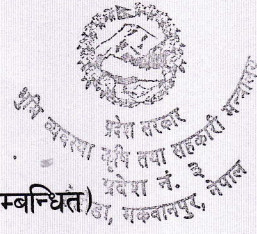 प्रदेश सरकार
भूमि व्यवस्था कृषि तथा सहकारी मन्त्रालय
प्रदेश नं. ३
डा, मकवानपुर, नेपाल
म्बन्धित)